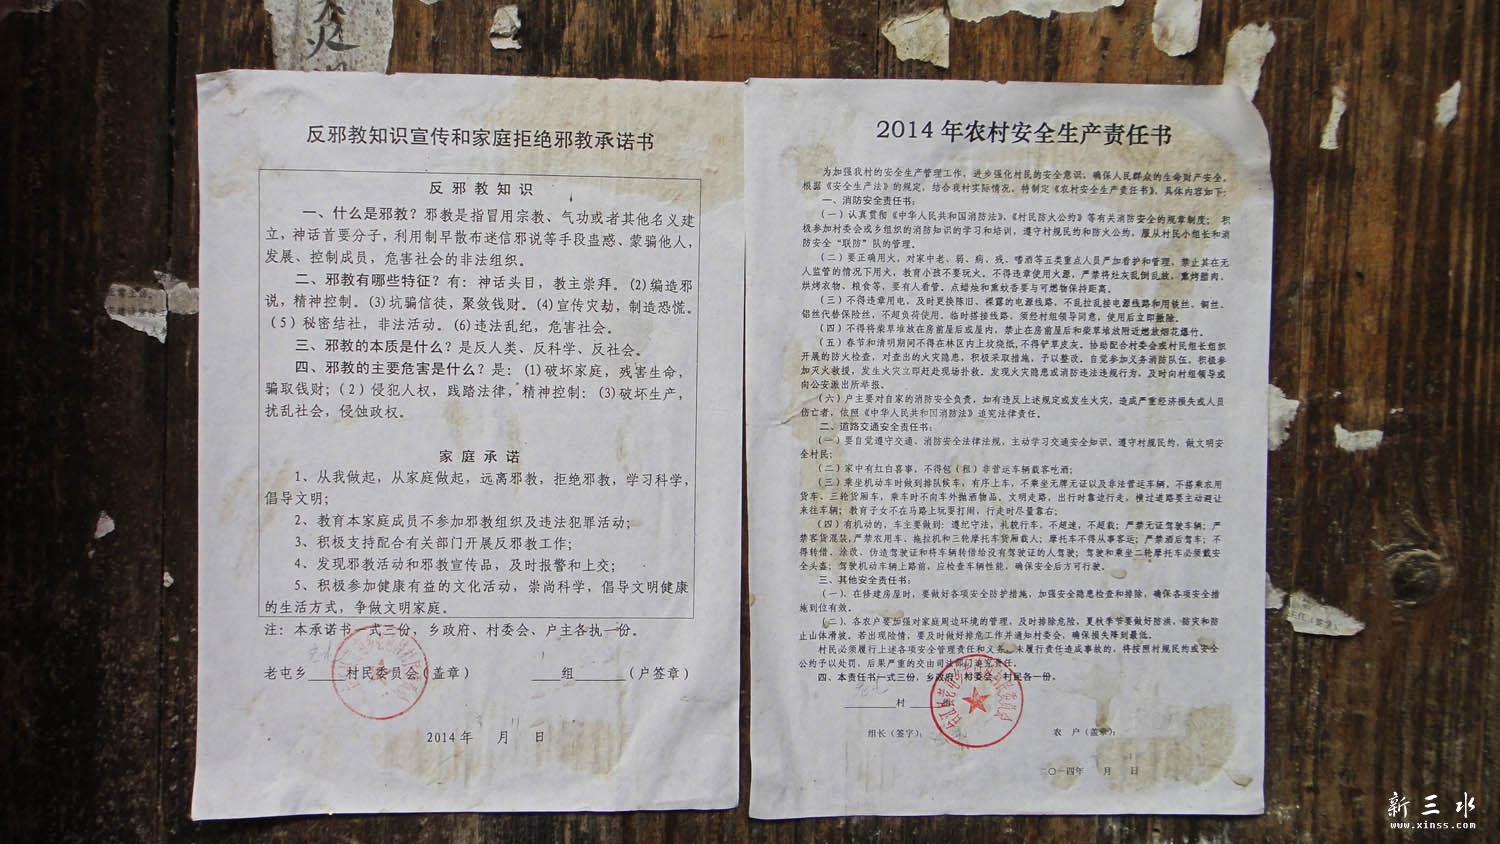 反邪教知识宣传和家庭拒绝邪教承诺书
反邪教知识
一、什么是邪教？邪教是指冒用宗教、气功或者其他名义建
立，神话首要分子，利用制早散布迷信邪说等手段蛊惑、蒙骗他人，
发展、控制成员，危害社会的非法组织。
二、邪教有哪些特征？有：神话头目，教主崇拜。(2)编造邪
说，精神控制。(3)坑骗信徒，聚敛钱财。(4)宣传灾劫，制造恐慌。
(5)秘密结社，非法活动。(6)违法乱纪，危害社会。
三、邪教的本质是什么？是反人类、反科学、反社会。
四、邪教的主要危害是什么？是：(1)破坏家庭，残害生命，
骗取钱财；(2)侵犯人权，践踏法律，精神控制；(3)破坏生产，
扰乱社会，侵蚀政权。
家庭承诺
1、从我做起，从家庭做起，远离邪教，拒绝邪教，学习科学，
倡导文明；
2、教育本家庭成员不参加邪教组织及违法犯罪活动；
3、积极支持配合有关部门开展反邪教工作；
4、发现邪教活动和邪教宣传品，及时报警和上交；
5、积极参加健康有益的文化活动，崇尚科学，倡导文明健康
的生活方式，争做文明家庭。
注：本承诺书一式三份，乡政府、村委会、户主各执一份。
老屯乡____村民委员会（盖章） ____组______（户签章）
2014年 月 日
2014年农村安全生产责任书
为加强我村的安全生产管理工作，进步强化村民的安全意识，确保人民群众的生命财产安全。
根据《安全生产法》的规定，结合我村实际情况，特制定《农村安全生产责任书》，具体内容如下：
一、消防安全责任书：
（一）认真贯彻《中华人民共和国消防法》、《村民防火公约》等有关消防安全的规章制度； 积
极参加村委会或乡组织的消防知识的学习和培训，遵守村规民约和防火公约，服从村民小组长和消
防安全“联防”队的管理。
（二）要正确用火，对家中老、弱、病、残、嗜酒等五类重点人员严加看护和管理，禁止其在无
人监管的情况下用火，教育小孩不要玩火。不得违章使用火源，严禁将灶灰乱倒乱放，熏烤腊肉，
烘烤衣物、粮食等，要有人看管。点蜡烛和熏蚊香要与可燃物保持距离。
（三）不得违章用电，及时更换陈旧、裸露的电源线路，不乱拉乱接电源线路和用铁丝、铜丝、
铝丝代替保险丝，不超负荷使用。临时搭接线路，须经村组领导同意，使用后立即撤除。
（四）不得将柴草堆放在房前屋后或屋内，禁止在房前屋后和柴草堆放附近燃放烟花爆竹。
（五）春节和清明期间不得在林区内上坟烧纸，不得铲草皮灰。协助配合村委会或村民组长组织
开展的防火检查，对查出的火灾隐患，积极采取措施，予以整改。自觉参加义务消防队伍。积极参
加灭火救援，发生火灾立即赶赴现场扑救。发现火灾隐患或消防违法违规行为，及时向村组领导或
向公安派出所举报。
（六）户主要对自家的消防安全负责，如有违反上述规定或发生火灾，造成严重经济损失或人员
伤亡者，依照《中华人民共和国消防法》追究法律责任。
二、道路交通安全责任书：
（一）要自觉遵守交通、消防安全法律法规，主动学习交通安全知识，遵守村规民约，做文明安
全村民；
（二）家中有红白喜事，不得包（租）非营运车辆载客吃酒；
（三）乘坐机动车时做到排队候车，有序上车，不乘坐无牌无证以及非法营运车辆，不搭乘农用
货车、三轮货厢车，乘车时不向车外抛洒物品。文明走路，出行时靠边行走，横过道路要主动避让
来往车辆；教育子女不在马路上玩耍打闹，行走时尽量靠右；
（四）有机动的，车主要做到：遵纪守法，礼貌行车，不超速，不超载；严禁无证驾驶车辆；严
禁客货混装，严禁农用车、拖拉机和三轮摩托车货厢载人；摩托车不得从事客运；严禁酒后驾车；不
得转借、涂改、伪造驾驶证和将车辆转借给没有驾驶证的人驾驶；驾驶和乘坐二轮摩托车必须戴安
全头盔；驾驶机动车辆上路前，应检查车辆性能，确保安全后方可行驶。
三、其他安全责任书：
（一）、在修建房屋时，要做好各项安全防护措施，加强安全隐患检查和排除，确保各项安全措
施到位有效。
（二）、各农户要加强对家庭周边环境的管理，及时排除危险，夏秋季节要做好防洪，防灾和防
止山体滑坡。若出现险情，要及时做好排危工作并通知村委会，确保损失降到最低。
村民必须履行上述各项安全管理责任和义务，未履行责任造成事故的，将按照村规民约或安全
公约予以处罚，后果严重的交由司法部门追究责任。
四、本责任书一式三份，乡政府、村委会、村民各一份。
______村______组
组长（签字）： 农 户（盖章）：
二〇一四年 月 日
新三水
www.xinss.com